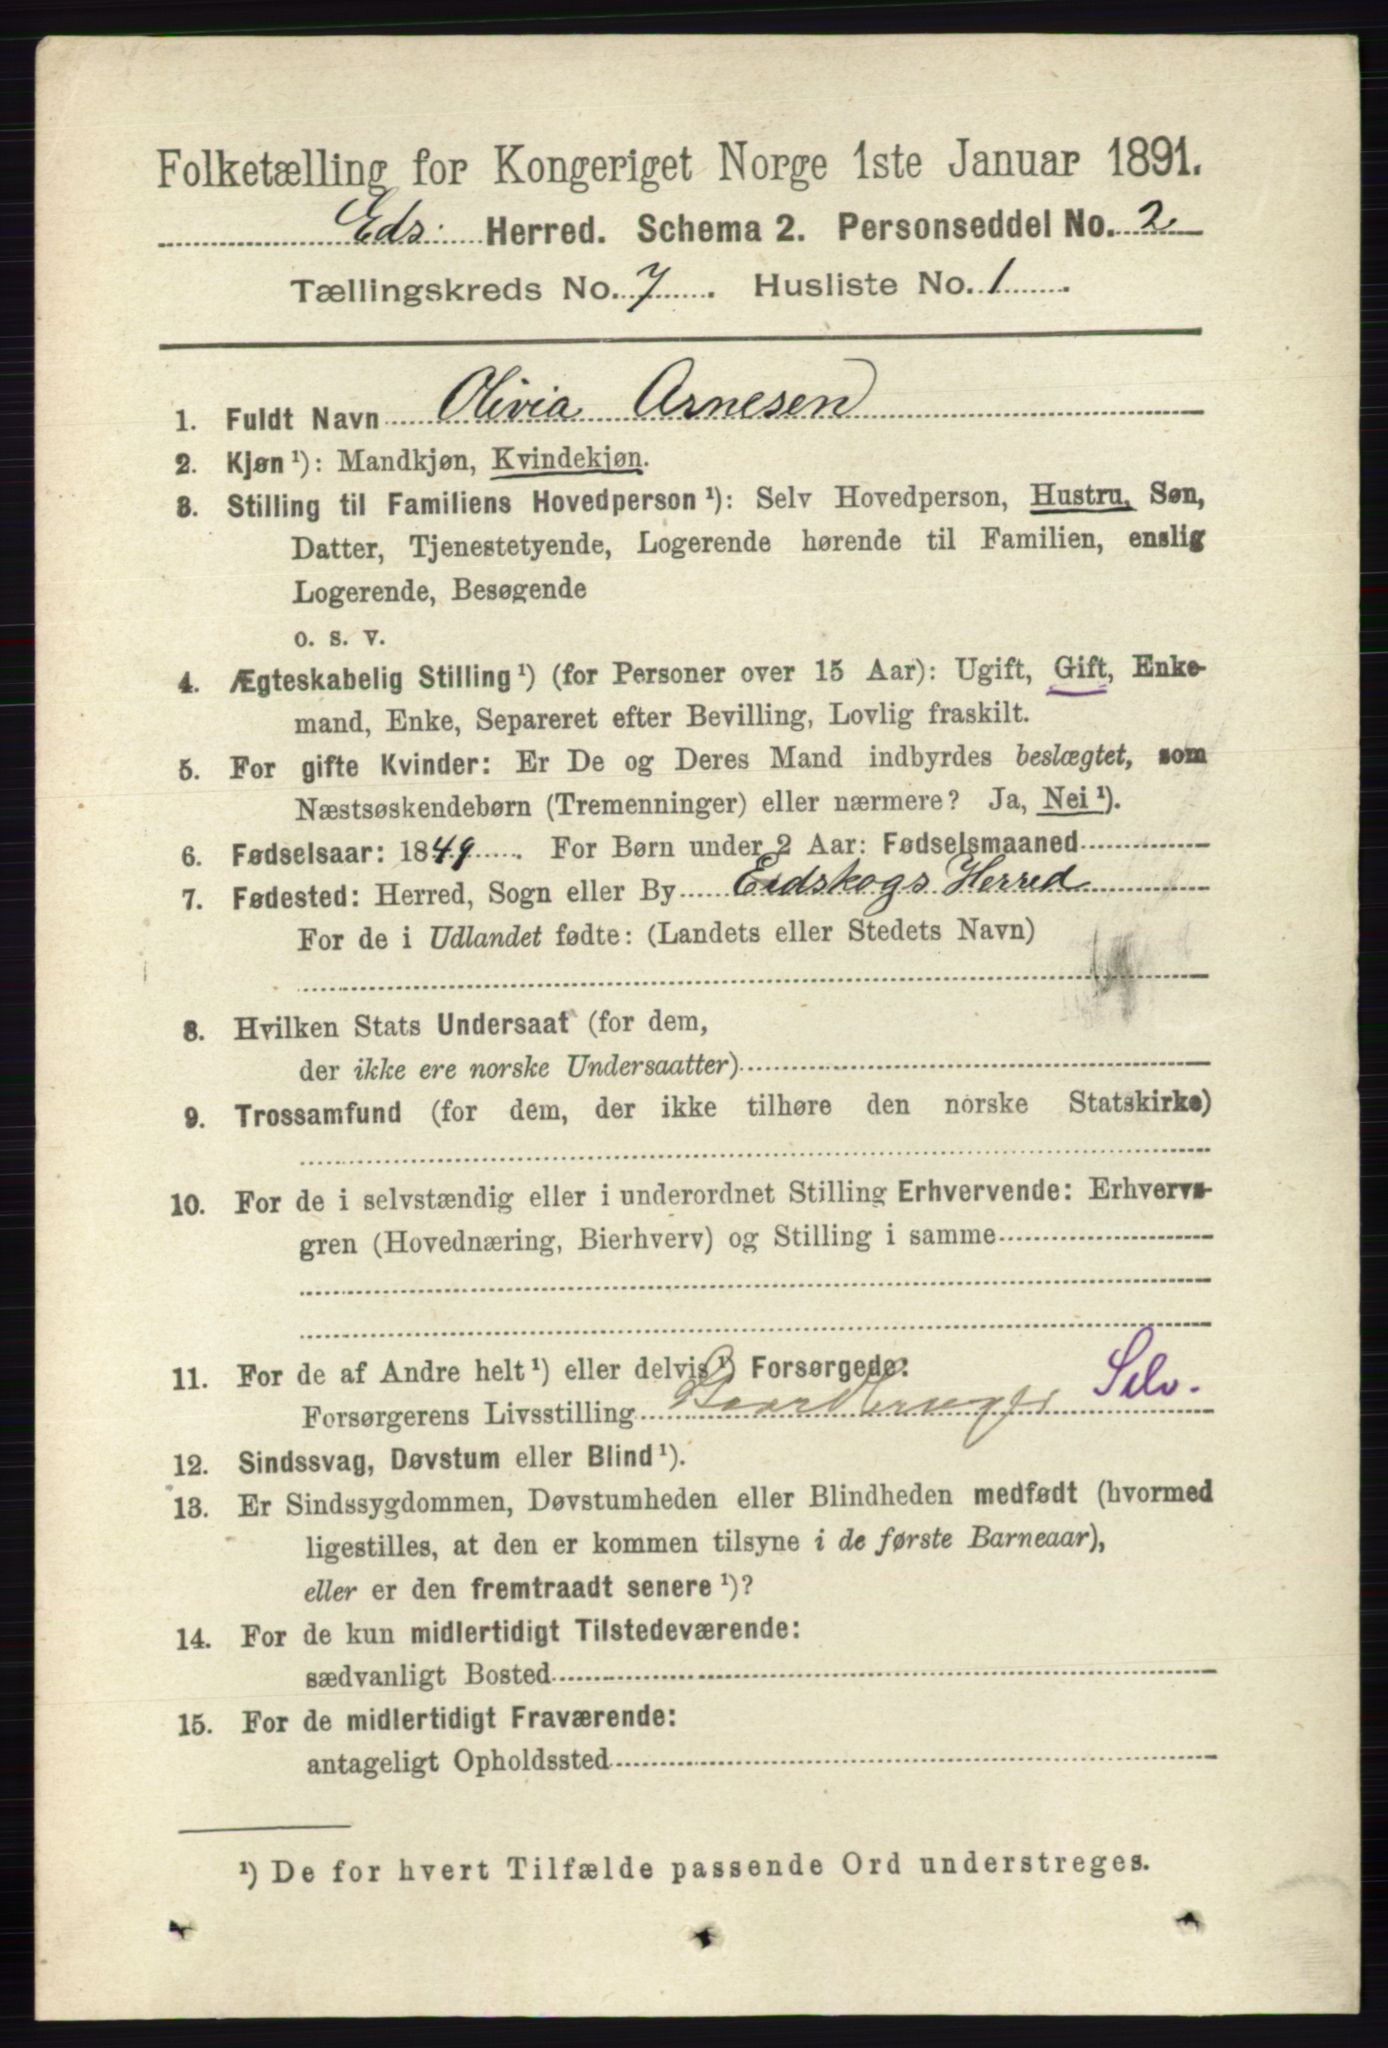 Folketælling for Kongeriget Norge 1ste Januar 1891.
Eds. Herred. Schema 2. Personseddel No. 2
Tællingskreds No. 7. Husliste No. 1.
1. Fuldt Navn Olivia Arnesen
2. Kjøn ¹): Mandkjøn, Kvindekjøn.
3. Stilling til Familiens Hovedperson ¹): Selv Hovedperson, Hustru, Søn,
Datter, Tjenestetyende, Logerende hørende til Familien, enslig
Logerende, Besøgende
o. s. v.
4. Ægteskabelig Stilling ¹) (for Personer over 15 Aar): Ugift, Gift, Enke-
mand, Enke, Separeret efter Bevilling, Lovlig fraskilt.
5. For gifte Kvinder: Er De og Deres Mand indbyrdes beslægtet, som
Næstsøskendebørn (Tremenninger) eller nærmere? Ja, Nei ¹).
6. Fødselsaar: 1849. For Børn under 2 Aar: Fødselsmaaned
7. Fødested: Herred, Sogn eller By Eidskogs Herred
For de i Udlandet fødte: (Landets eller Stedets Navn)
8. Hvilken Stats Undersaat (for dem,
der ikke ere norske Undersaatter)
9. Trossamfund (for dem, der ikke tilhøre den norske Statskirke)
10. For de i selvstændig eller i underordnet Stilling Erhvervende: Erhvervs-
gren (Hovednæring, Bierhverv) og Stilling i samme
11. For de af Andre helt ¹) eller delvis ¹) Forsørgede:
Forsørgerens Livsstilling Selv.
12. Sindssvag, Døvstum eller Blind ¹).
13. Er Sindssygdommen, Døvstumheden eller Blindheden medfødt (hvormed
ligestilles, at den er kommen tilsyne i de første Barneaar),
eller er den fremtraadt senere ¹)?
14. For de kun midlertidigt Tilstedeværende:
sædvanligt Bosted
15. For de midlertidigt Fraværende:
antageligt Opholdssted
¹) De for hvert Tilfælde passende Ord understreges.